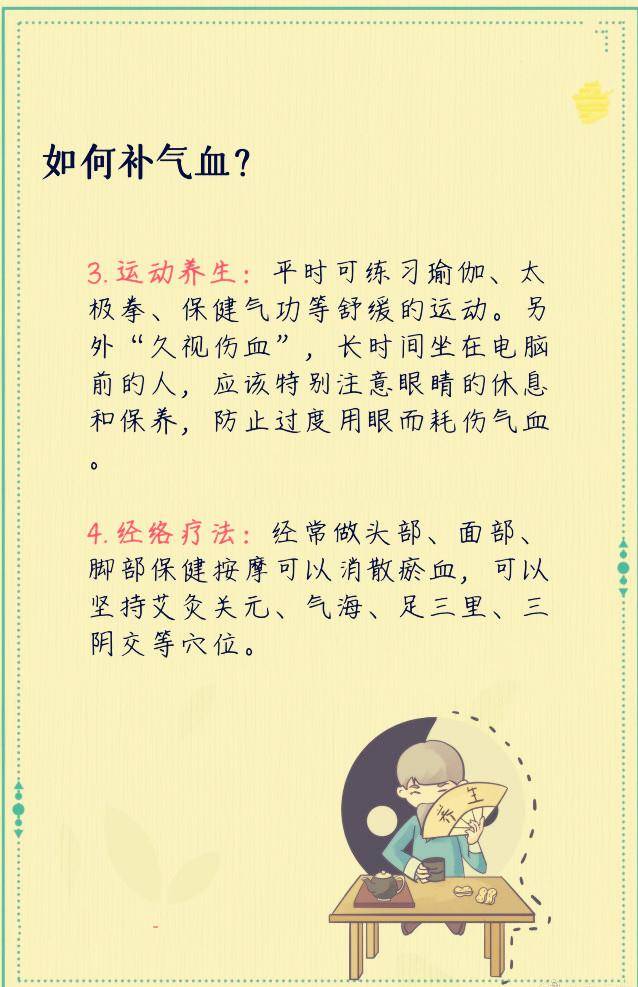 如何补气血?
3.运动养生：平时可练习瑜伽、太
极拳、保健气功等舒缓的运动。另
外“久视伤血”，长时间坐在电脑
前的人，应该特别注意眼睛的休息
和保养，防止过度用眼而耗伤气血
。
4.经络疗法：经常做头部、面部、
脚部保健按摩可以消散瘀血，可以
坚持艾灸关元、气海、足三里、三
阴交等穴位。
养生